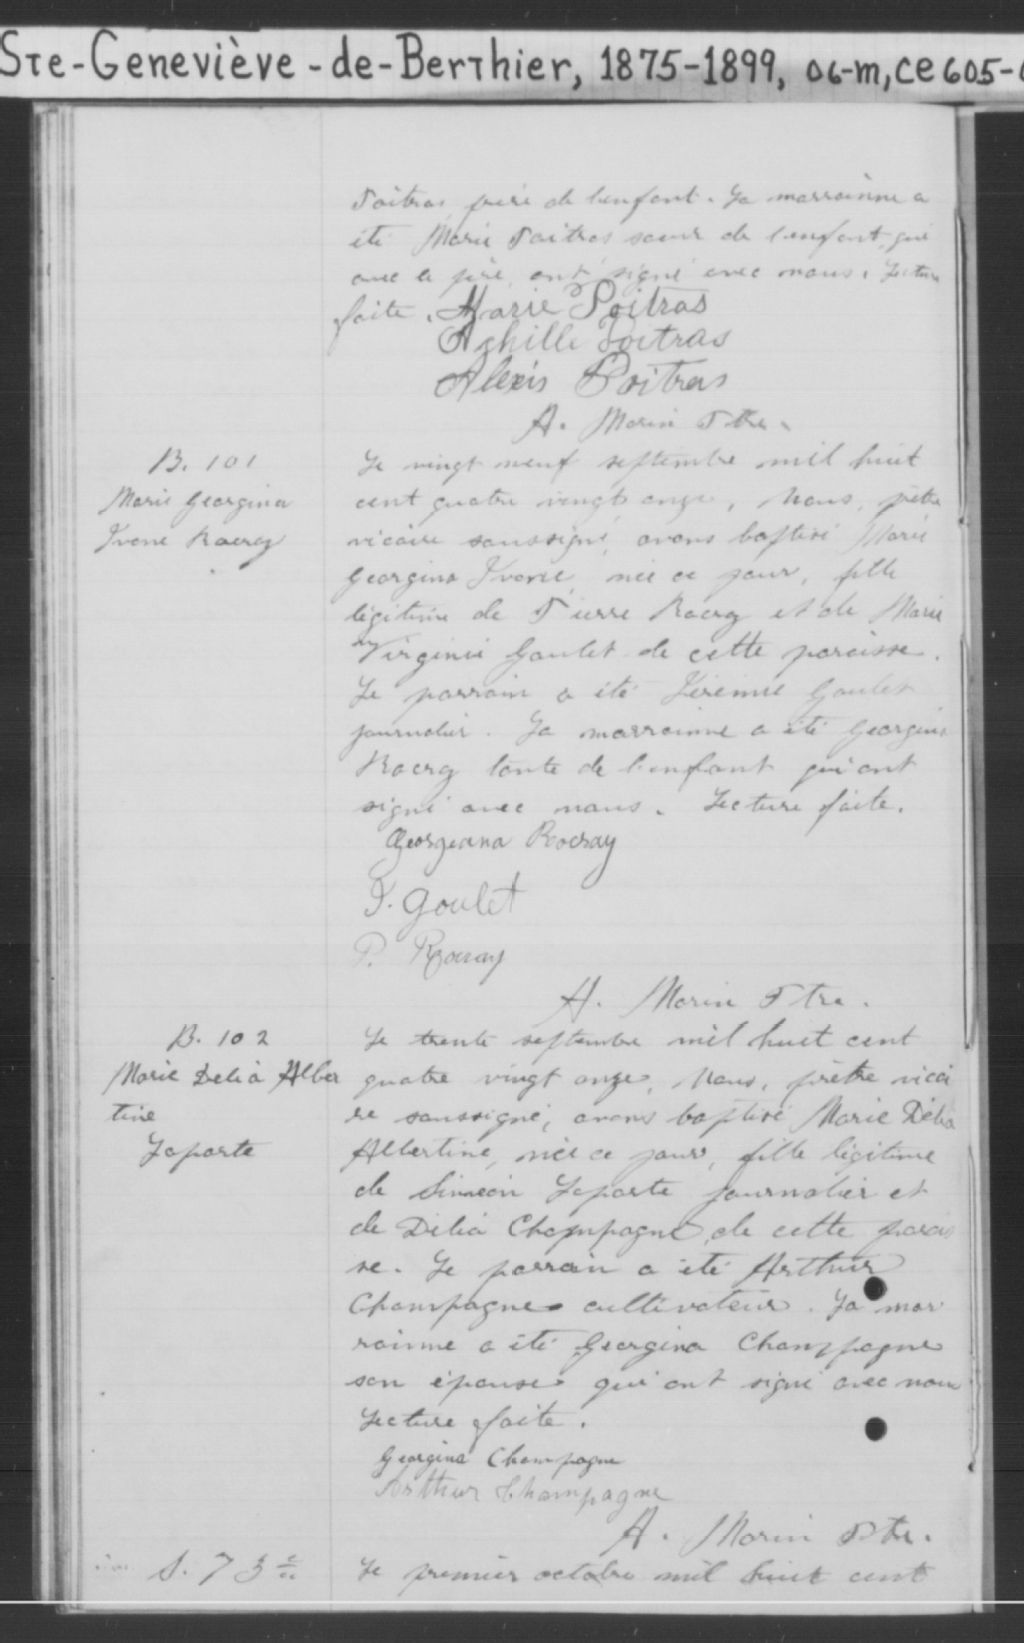 Ste-Geneviève-de-Berthier, 1875-1899, 06-m, ce605-
Poitras père de l'enfant. La marraine a
été Marie Poitras soeur de l'enfant, qui
avec le père, ont signé avec nous. Lecture
faite.
Marie Poitras
Achille Poitras
Alexis Poitras
A. Morin Ptre.
B. 101
Marie Georgina
Ivone Rocray
Le vingt neuf septembre mil huit
cent quatre vingt onze, Nous, prêtre
vicaire soussigné, avons baptisé Marie
Georgina Ivone, née ce jour, fille
légitime de Pierre Rocray et de Marie
Virginie Goulet de cette paroisse.
Le parrain a été Jérémie Goulet
journalier. La marraine a été Georgina
Rocray tante de l'enfant qui ont
signé avec nous. Lecture faite.
Georgeana Rocray
J. Goulet
P. Rocray
A. Morin Ptre.
B. 102
Marie Delia Alber
tine
Laporte
Le trente septembre mil huit cent
quatre vingt onze, Nous, prêtre vicai
re soussigné, avons baptisé Marie Délia
Albertine, née ce jour, fille légitime
de Siméon Laporte journalier et
de Délia Champagne, de cette parois
se. Le parrain a été Arthur
Champagne cultivateur. La mar
rainne a été Georgina Champagne
son épouse qui ont signé avec nous
Lecture faite.
Georgina Champagne
Arthur Champagne
A. Morin Ptre.
S. 73
Le premier octobre mil huit cent